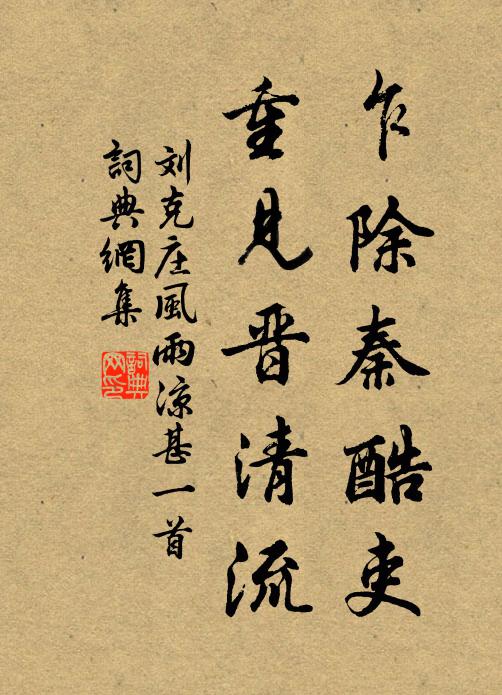 乍除秦酷吏
重见晋清流
刘克庄風雨凉甚一首
詞典網集
詞典网印